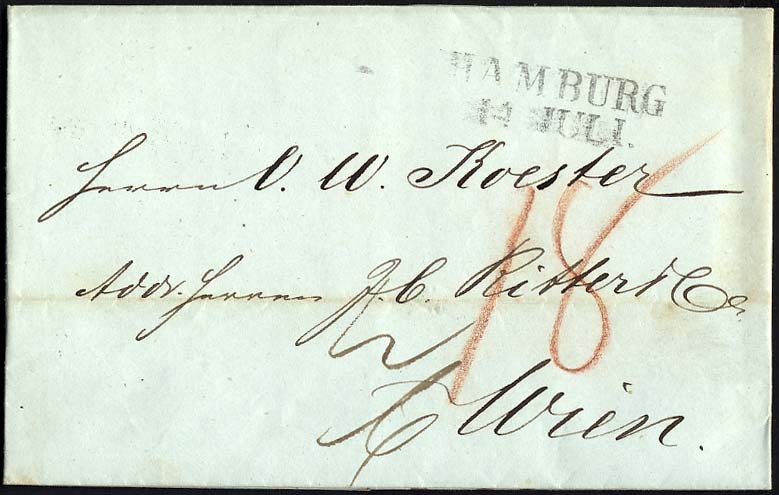 HAMBURG
14 JULI.
Herrn O. W. Koester
Addr. Herren J. C. Ritter & Co
18
Wien.